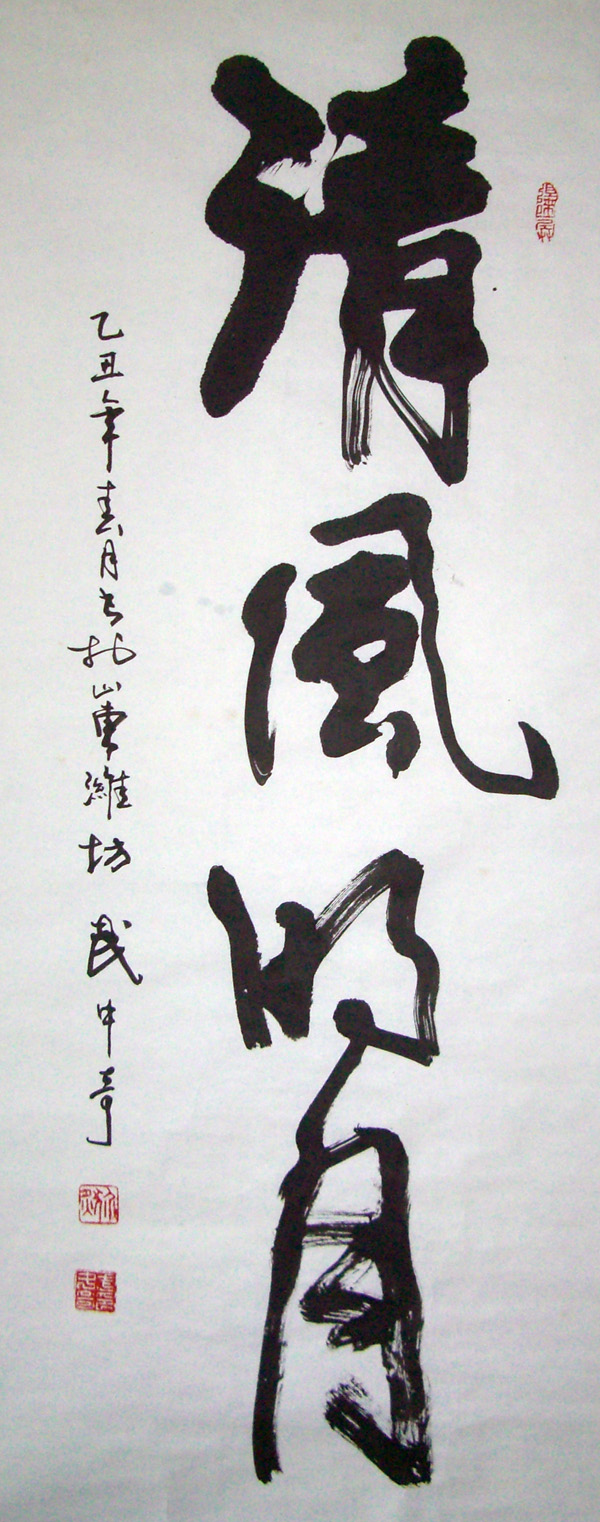 清風明月
乙丑年春月书於山東濰坊 武中奇